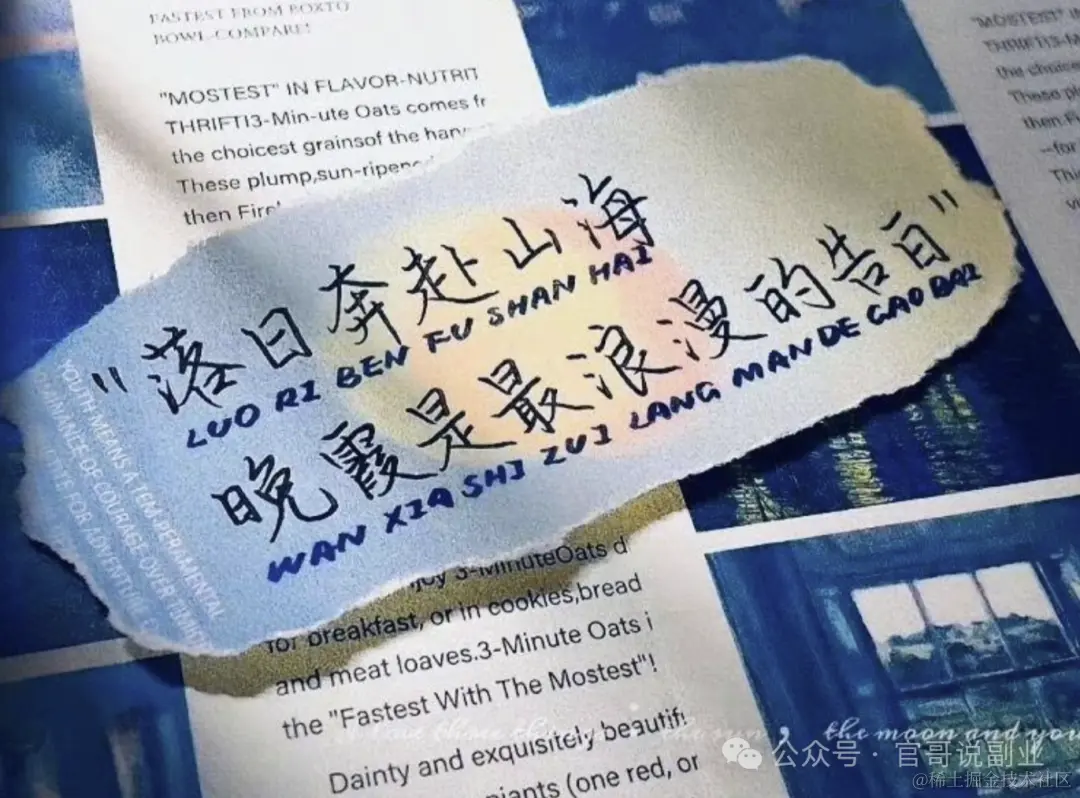 FASTEST FROM BOXTO
BOWL-COMPARE!
"MOSTEST" IN FLAVOR-NUTRIT
THRIFTI3-Min-ute Oats comes fr
the choicest grainsof the har
These plump,sun-ripen
then Fire
"MOSTEST" IN
THRIFTI3-Min
the choices
These plu
then.F
--for
Thi
"落日奔赴山海
LUO RI BEN FU SHAN HAI
晚霞是最浪漫的告白"
WAN XIA SHI ZUI LANG MAN DE GAO BAI
YOUTH MEANS A TEMPERAMENTAL
OMINANCE OF COURAGE OVER TIMID
joy 3-MinuteOats d
for breakfast, or in cookies,bread
and meat loaves.3-Minute Oats i
the "Fastest With The Mostest"!
Dainty and exquisitely beautif
piants (one red, or
I love three things the sun, the moon and you
公众号·官哥说副业
@稀土掘金技术社区